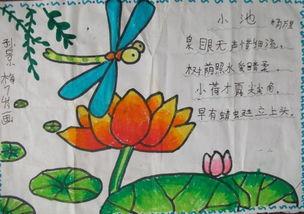 小池
杨万里
泉眼无声惜细流,
树荫照水爱晴柔。
小荷才露尖尖角,
早有蜻蜓立上头。